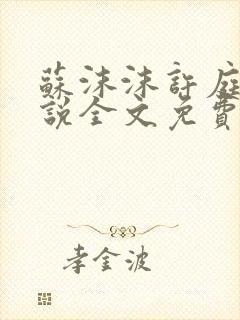 蘇沫沫許庭
說全文免費
李金波